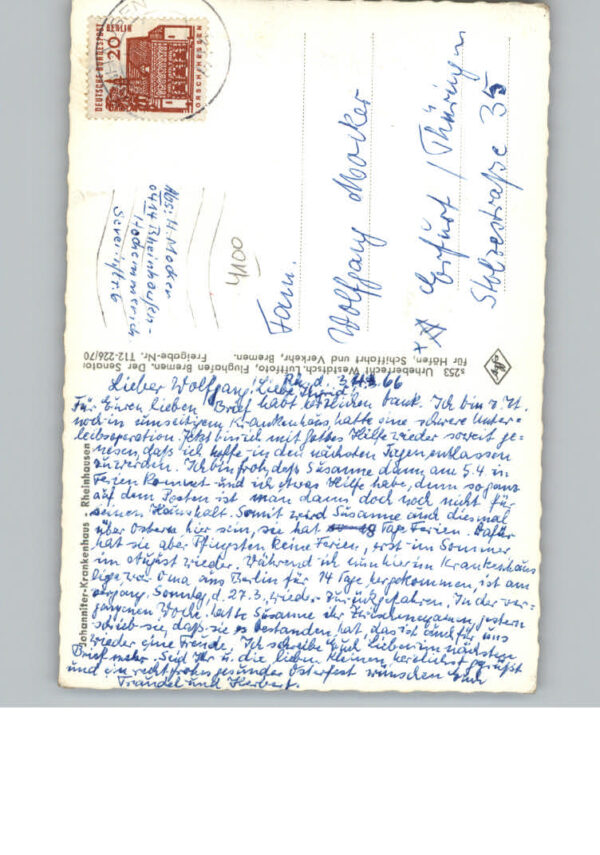 DEUTSCHE BUNDESPOST
BERLIN
20
LORSCH/HESSEN
Abs: H. Mocker
414 Rheinhausen-
Hochemmerich
4100
Fam.
Wolfgang Mocker
Erfurt / Thüringen
Stolzestraße 35
s253 Urheberrecht Westdtsch. Luftfoto, Flughafen Bremen. Der Senator
für Häfen, Schiffahrt und Verkehr, Bremen. Freigabe-Nr. T12-226/70
Johanniter-Krankenhaus Rheinhausen
Rh., d. 3.4.66
Lieber Wolfgang, Liebe Ingrid!
Für Euren lieben Brief habt herzlichen Dank. Ich bin z. Zt.
noch in umseitigem Krankenhaus, hatte eine schwere Unter-
leibsoperation. Jetzt bin ich mit Gottes Hilfe wieder soweit ge-
nesen, daß ich hoffe in den nächsten Tagen entlassen
zu werden. Ich bin froh, daß Susanne dann am 5.4. in
Ferien kommt und ich etwas Hilfe habe, denn so ganz
auf dem Posten ist man dann doch noch nicht für
seinen Haushalt. Somit wird Susanne auch diesmal
über Ostern hier sein, sie hat Tage Ferien. Dafür
hat sie aber Pfingsten keine Ferien, erst im Sommer
im August wieder. Während ich nun hier im Krankenhaus
liege war Oma aus Berlin für 14 Tage hergekommen, ist am
vergang. Sonntag, d. 27.3. wieder zurückgefahren. In der ver-
gangenen Woche hatte Susanne ihr Zwischenexamen, gestern
schrieb sie, daß sie es bestanden hat, das ist auch für uns
wieder eine Freude. Ich schreibe Euch lieber im nächsten
Brief mehr. Seid Ihr u. die lieben Kleinen herzlichst gegrüßt
und ein recht frohes gesundes Osterfest wünschen Euch
Traudel und Herbert.